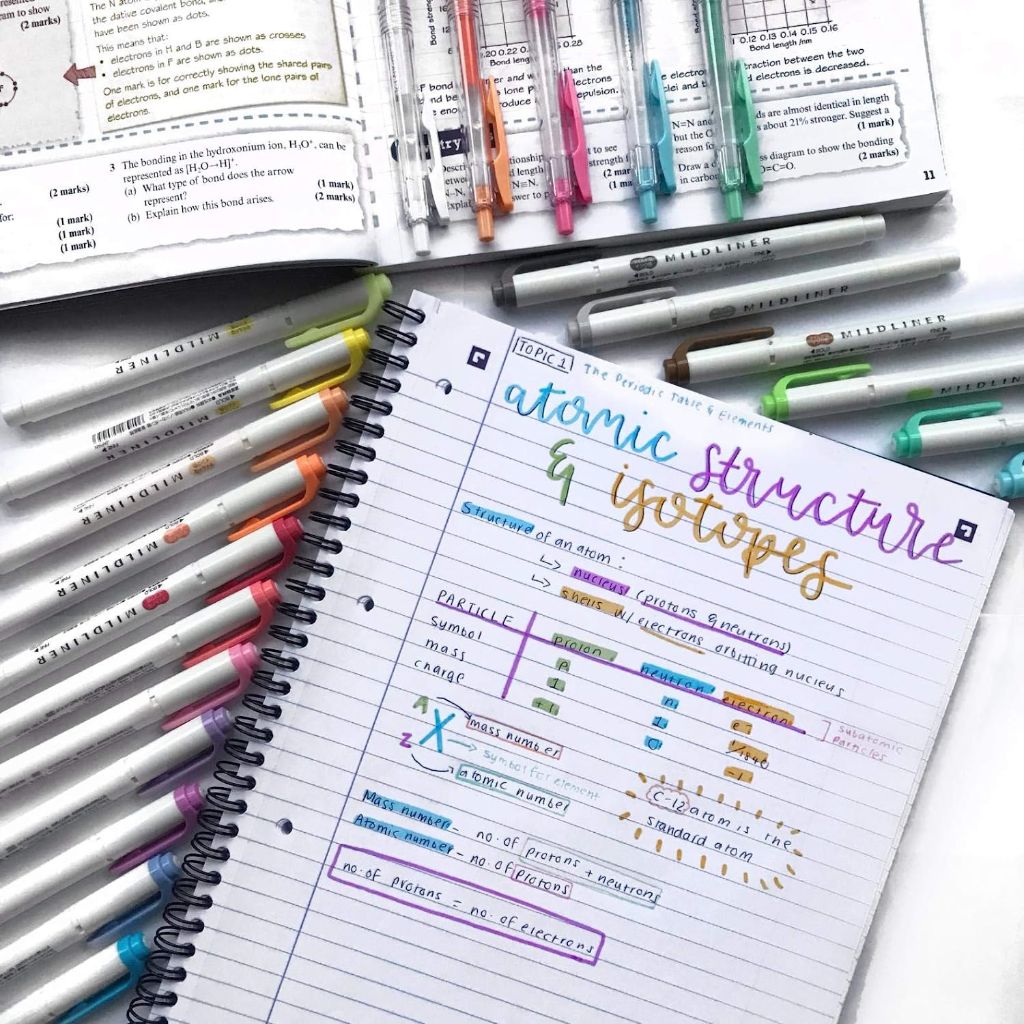 am to show
(2 marks)
The N atom
the dative covalent bond, and
have been shown as dots.
This means that:
electrons in H and B are shown as crosses
• electrons in F are shown as dots.
One mark is for correctly showing the shared pairs
of electrons, and one mark for the lone pairs of
electrons.
3 The bonding in the hydroxonium ion, H₃O⁺, can be
represented as [H₂O→H]⁺.
(a) What type of bond does the arrow
represent?
(1 mark)
(b) Explain how this bond arises.
(2 marks)
(2 marks)
for:
(1 mark)
(1 mark)
(1 mark)
0.20 0.22
0.28
Bond length
0.12 0.13 0.14 0.15 0.16
Bond length /nm
than the
electrons
repulsion.
raction between the two
electrons is decreased.
N≡N
ds are almost identical in length
about 21% stronger. Suggest a
(1 mark)
ss diagram to show the bonding
O=C=O.
(2 marks)
11
MILDLINER
MILDLINER
MILDLINER
MILDLINER
MILDLINER
MILDLINER
MILDLINER
MILDLINER
MILDLINER
TOPIC 1
The Periodic Table & Elements
atomic structure
& isotopes
Structure of an atom:
↳ nucleus (protons & neutrons)
↳ shells w/ electrons orbitting nucleus
PARTICLE proton neutron electron
symbol p n e⁻
mass 1 1 1/1840
charge +1 0 -1
] subatomic
particles
A
X
Z
mass number
symbol for element
atomic number
C-12 atom is the
standard atom
Mass number - no. of protons + neutrons
Atomic number - no. of protons
no. of protons = no. of electrons